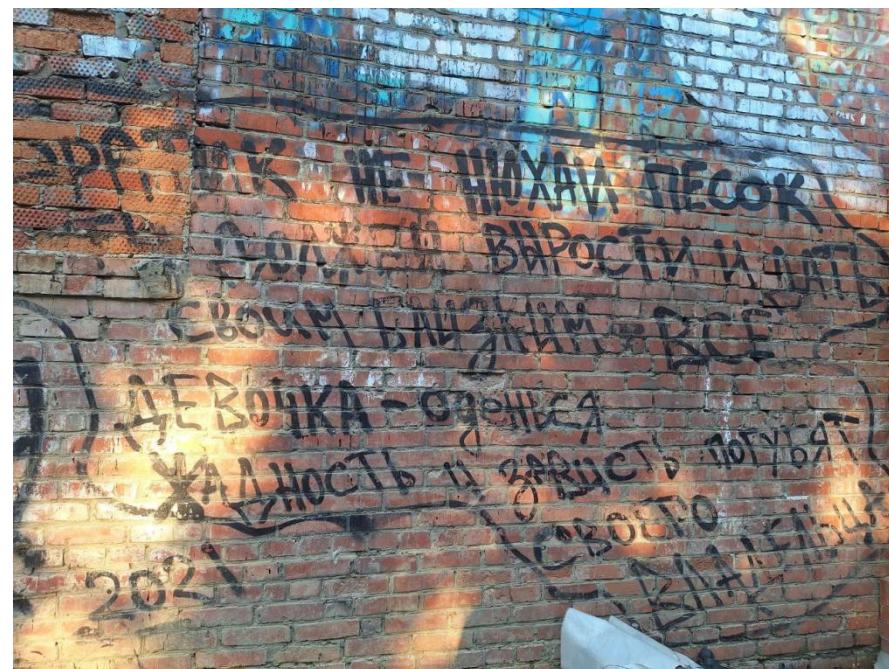 БРАТОК НЕ НЮХАЙ ПЕСОК
ДОЛЖЕН ВЫРОСТИ И ДАТЬ
СВОИМ БЛИЗКИМ ВСЁ
ДЕВОЧКА - оденься
ЖАДНОСТЬ и ЗАВИСТЬ ПОГУБЯТ
СВОЕГО
ВЛАДЕЛЬЦА
2021